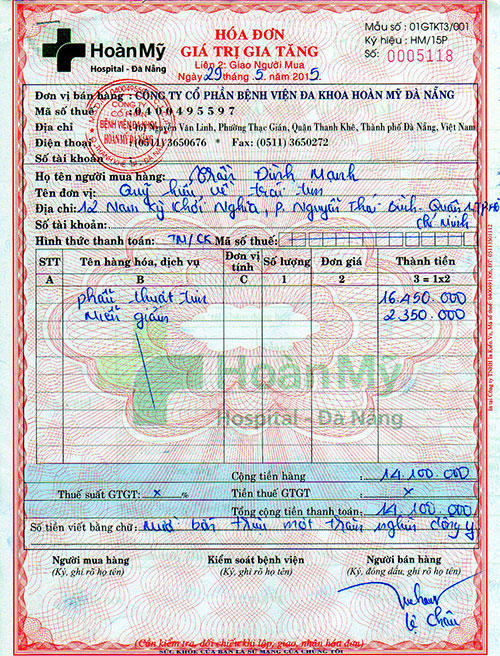 HoànMỹ
Hospital - Đà Nẵng
HÓA ĐƠN
GIÁ TRỊ GIA TĂNG
Liên 2: Giao Người Mua
Ngày 29 tháng 5. năm 2015
Mẫu số : 01GTKT3/001
Ký hiệu : HM/15P
Số: 0005118
Đơn vị bán hàng : CÔNG TY CỔ PHẦN BỆNH VIỆN ĐA KHOA HOÀN MỸ ĐÀ NẴNG
Mã số thuế : 0400495597
Địa chỉ : 161 Nguyễn Văn Linh, Phường Thạc Gián, Quận Thanh Khê, Thành phố Đà Nẵng, Việt Nam
Điện thoại : (0511) 3650676 * Fax: (0511) 3650272
Số tài khoản
CÔNG TY
CỔ PHẦN
BỆNH VIỆN ĐA KHOA
HOÀN MỸ ĐÀ NẴNG
Họ tên người mua hàng: Trần Đình Mạnh
Tên đơn vị: Quỹ hiểu về trái tim
Địa chỉ: 12 Nam Kỳ Khởi Nghĩa, P. Nguyễn Thái Bình. Quận 1, TP Hồ
Chí Minh
Số tài khoản:
Hình thức thanh toán: TM/CK Mã số thuế:
STT Tên hàng hóa, dịch vụ Đơn vị tính Số lượng Đơn giá Thành tiền
A B C 1 2 3 = 1x2
phẫu thuật tim 16.450.000
Miễn giảm 2.350.000
HoànMỹ
Hospital - Đà Nẵng
Cộng tiền hàng 14.100.000
Thuế suất GTGT: x % Tiền thuế GTGT x
Tổng cộng tiền thanh toán: 14.100.000
Số tiền viết bằng chữ: Mười bốn triệu một trăm nghìn đồng y
Người mua hàng Kiểm soát bệnh viện Người bán hàng
(Ký, ghi rõ họ tên) (Ký, ghi rõ họ tên) (Ký, đóng dấu, ghi rõ họ tên)
Lệ Châu
(Cần kiểm tra, đối chiếu khi lập, giao, nhận hóa đơn)
SỨC KHỎE CỦA BẠN LÀ SỨ MẠNG CỦA CHÚNG TÔI